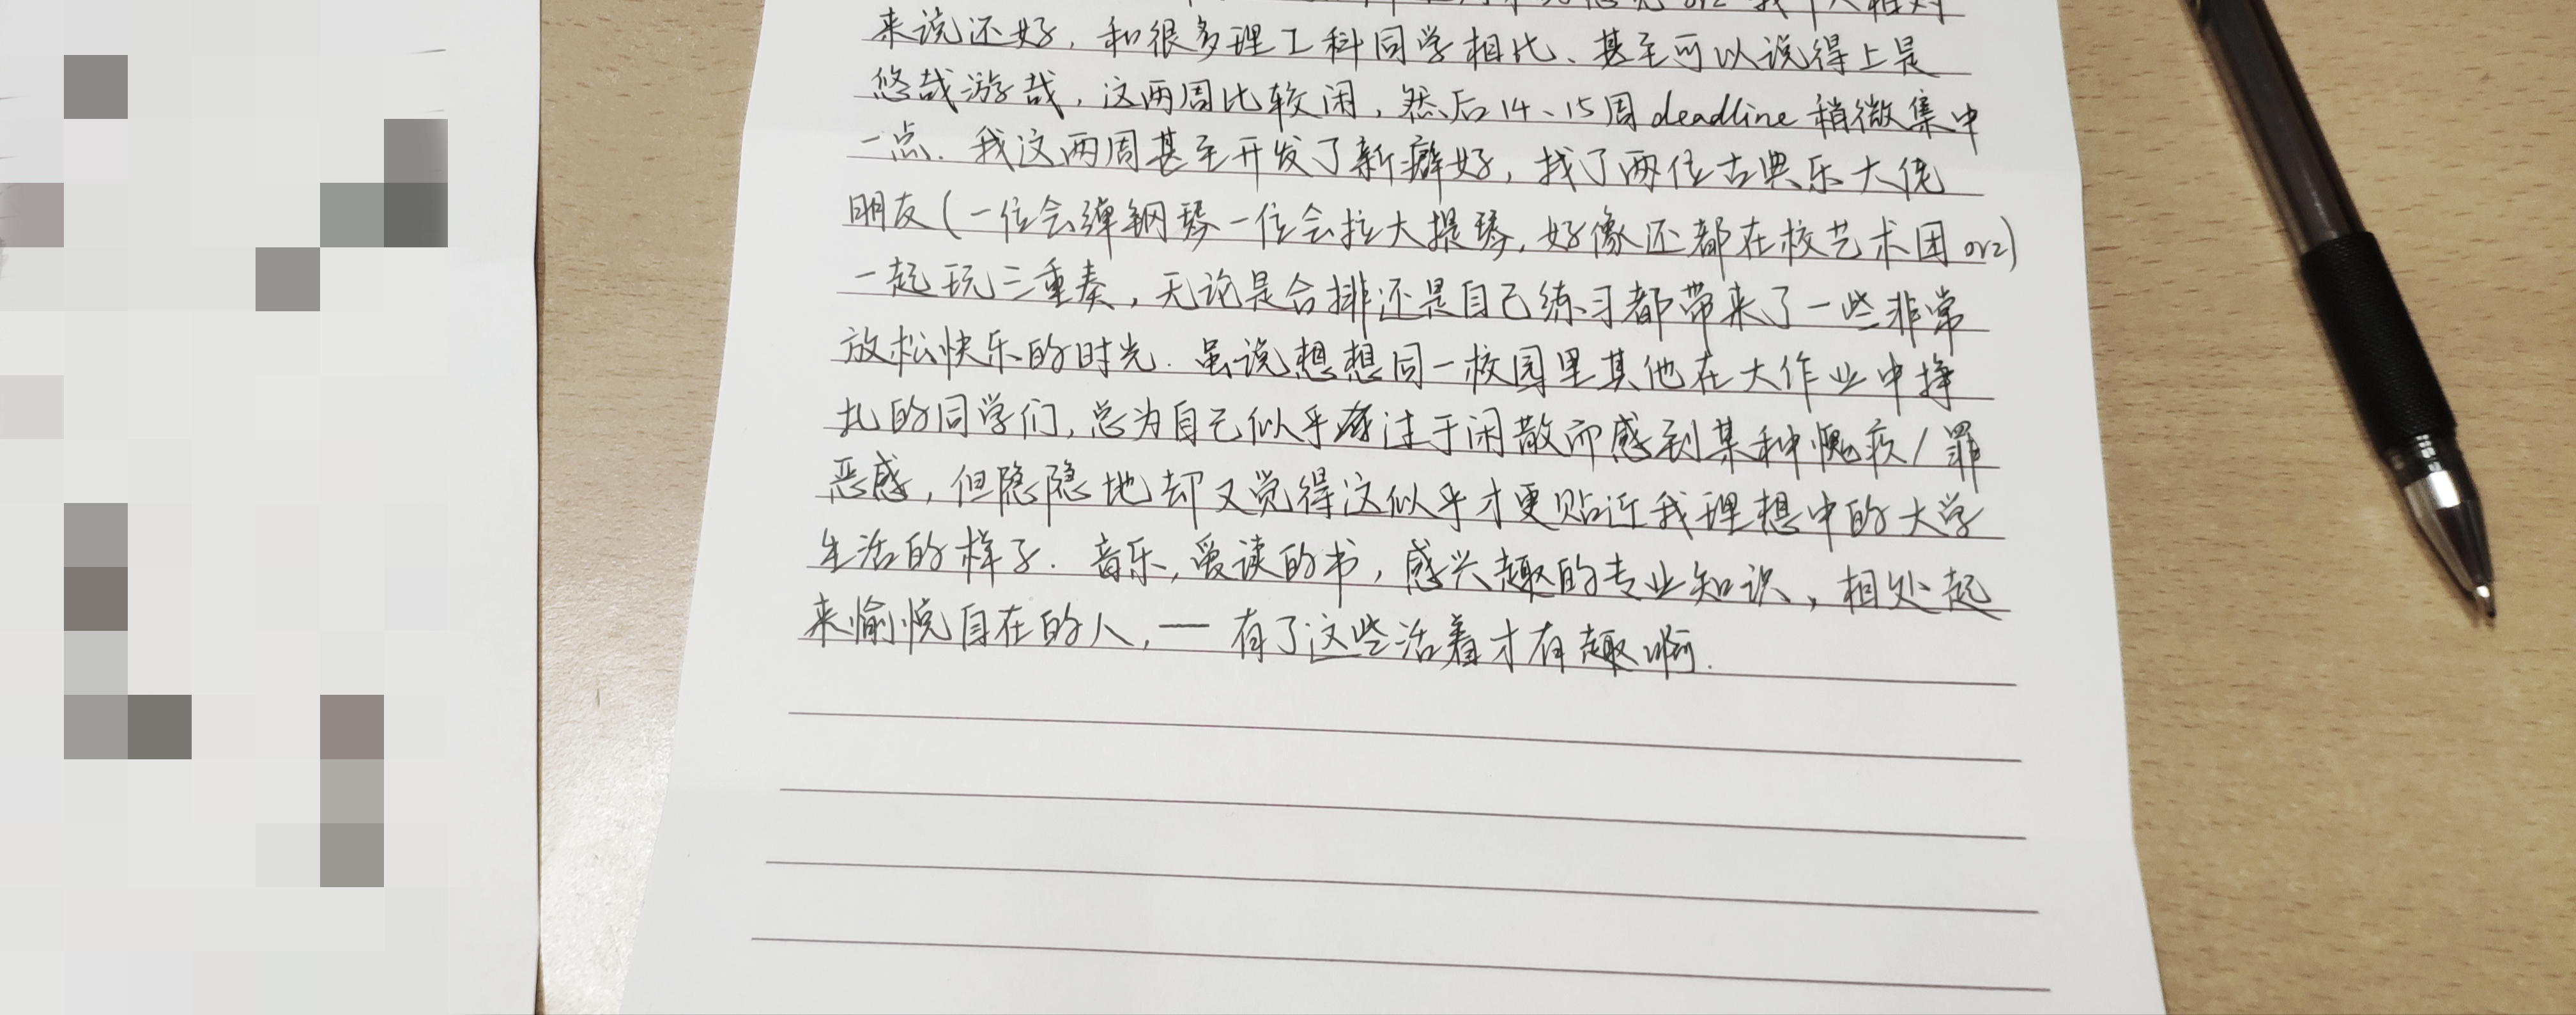 orz 我个人相对
来说还好，和很多理工科同学相比、甚至可以说得上是
悠哉游哉，这两周比较闲，然后14、15周deadline稍微集中
一点．我这两周甚至开发了新癖好，找了两位古典乐大佬
朋友(一位会弹钢琴一位会拉大提琴，好像还都在校艺术团orz)
一起玩三重奏，无论是合排还是自己练习都带来了一些非常
放松快乐的时光．虽说想想同一校园里其他在大作业中挣
扎的同学们，总为自己似乎过于闲散而感到某种愧疚/罪
恶感，但隐隐地却又觉得这似乎才更贴近我理想中的大学
生活的样子．音乐，爱读的书，感兴趣的专业知识，相处起
来愉悦自在的人，—有了这些活着才有趣啊．